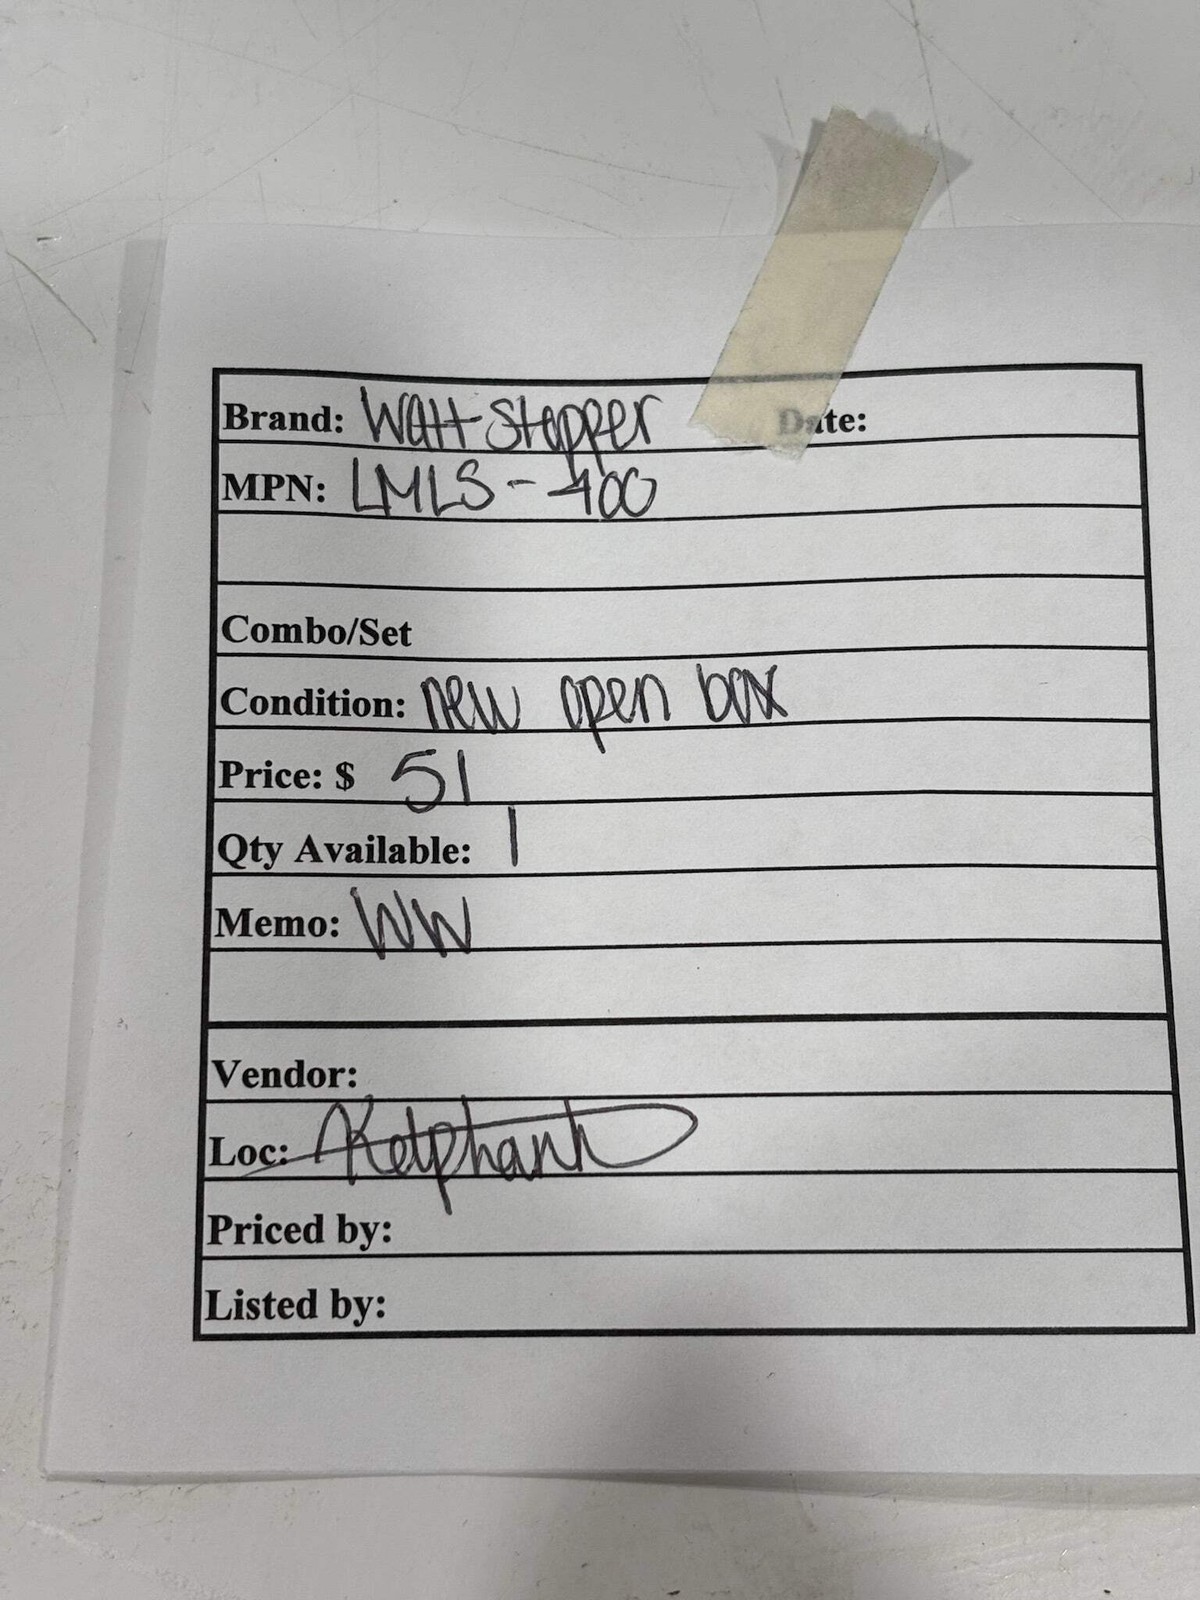 Brand: Watt Stopper Date:
MPN: LMLS-400
Combo/Set
Condition: new open box
Price: $ 51
Qty Available: 1
Memo: WW
Vendor:
Loc:
Priced by:
Listed by: